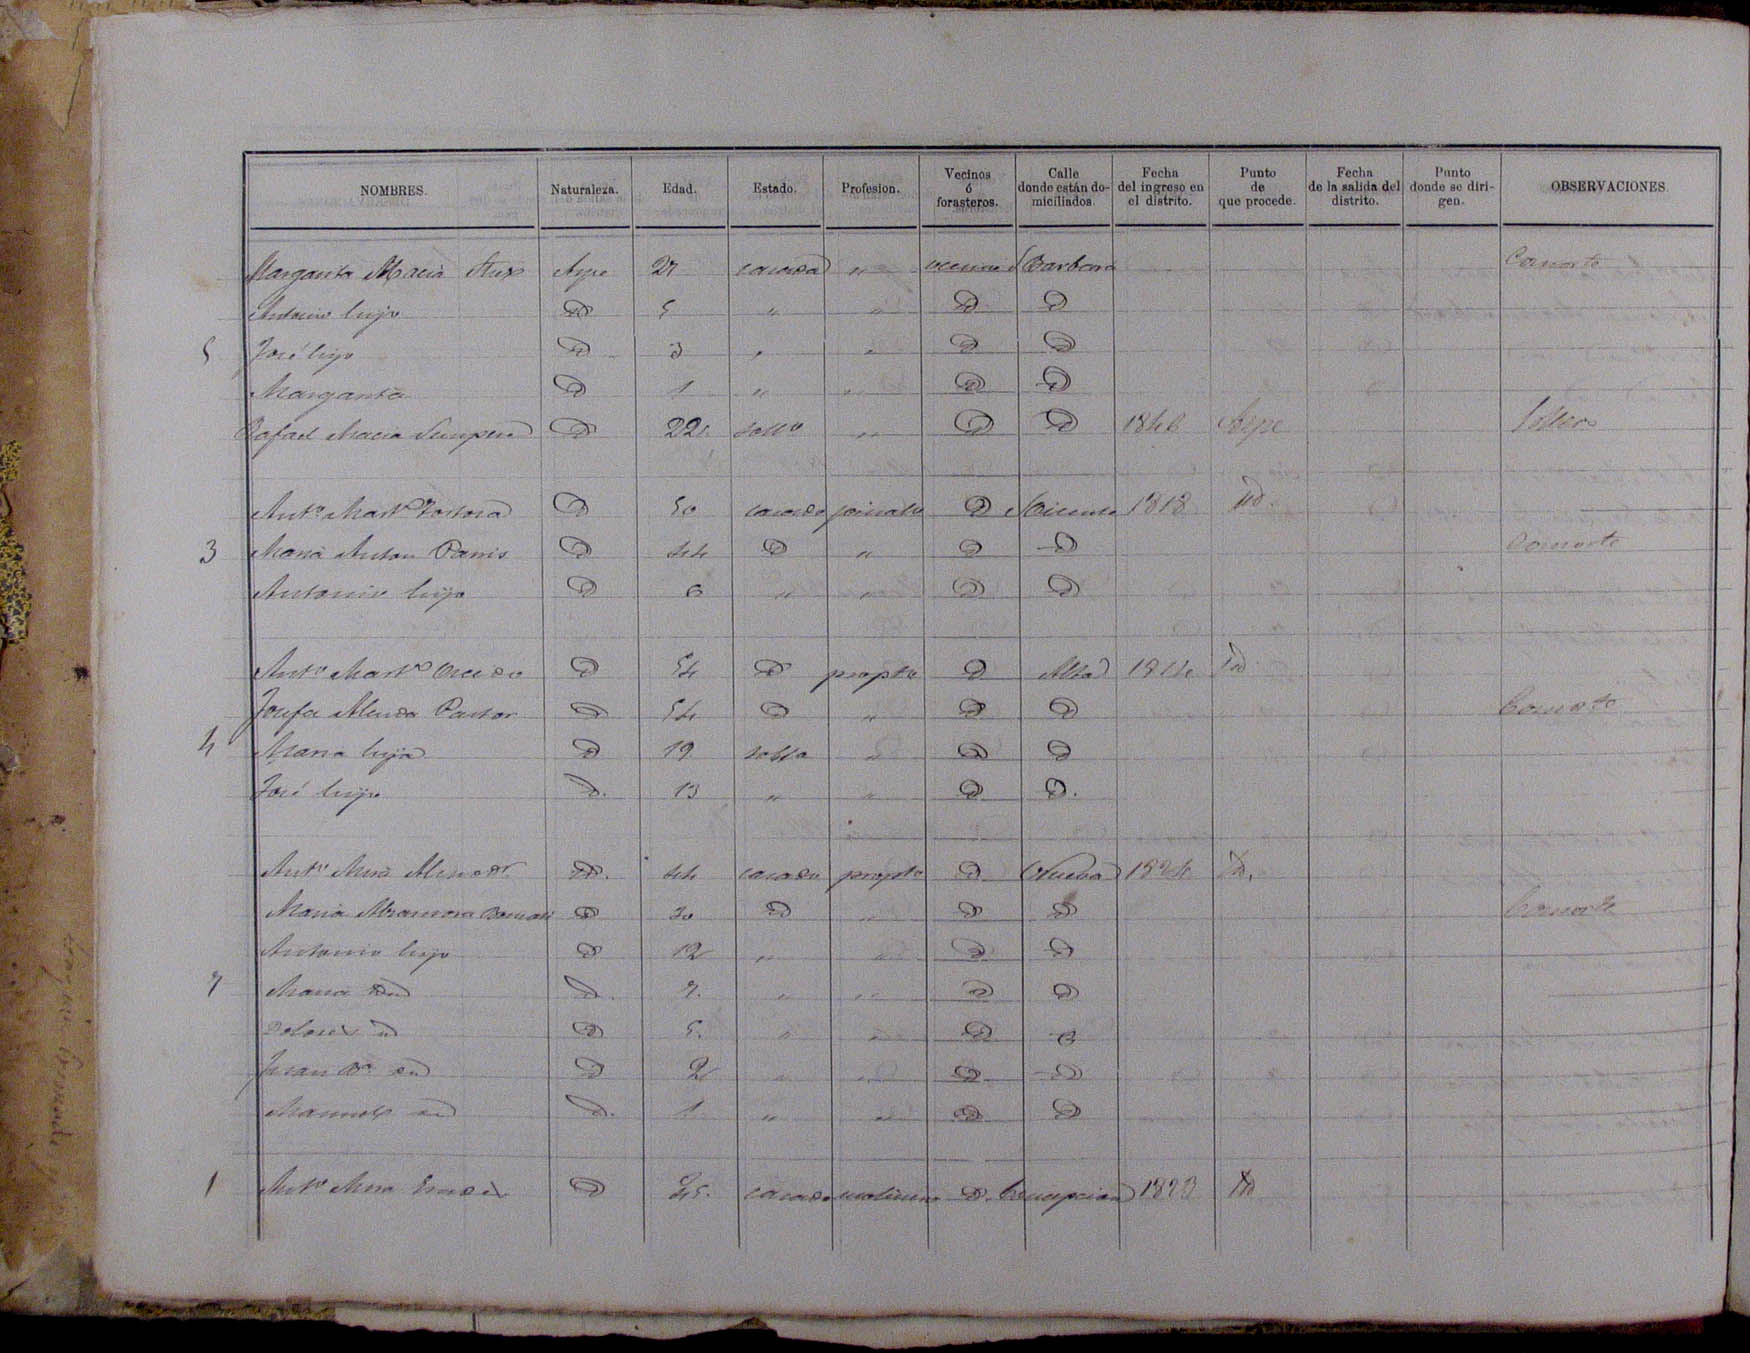 NOMBRES. Naturaleza. Edad. Estado. Profesion. Vecinos ó forasteros. Calle donde están domiciliados. Fecha del ingreso en el distrito. Punto de que procede. Fecha de la salida del distrito. Punto donde se dirigen. OBSERVACIONES.
Margarita Maciá Aspe 27 casada " vecino Barbara Consorte
Antonio hijo D 5 " " D D
5 José hijo D 3 " " D D
Margarita D 1 " " D D
Rafael Macia Sempere D 22 soltº " D D 1846 Aspe Soltero
Antº Martz Tortosa D 50 casado jornalo D 1818 id
3 Maria Anton D 44 D " D D Consorte
Antonio hijo D 6 " " D D
Antº Martz D 54 D propto D Alta 1814 id
Josefa Almira Pastor D 54 D " D D Consorte
4 Maria hija D 19 solta " D D
José hijo D. 13 " " D D.
Antº Mira D. 44 casado propto D. Nueva 1824 Id.
Maria D 30 D " D D Consorte
Antonio hijo D 12 " " D D
7 Maria id D. 7. " " D D
Dolores id D 5. " " D D
Juan Bª id D 2 " " D D
Manuel id D. 1 " " D D
1 Antº Mira D 45. casado molinero D. Concepcion 1823 Id